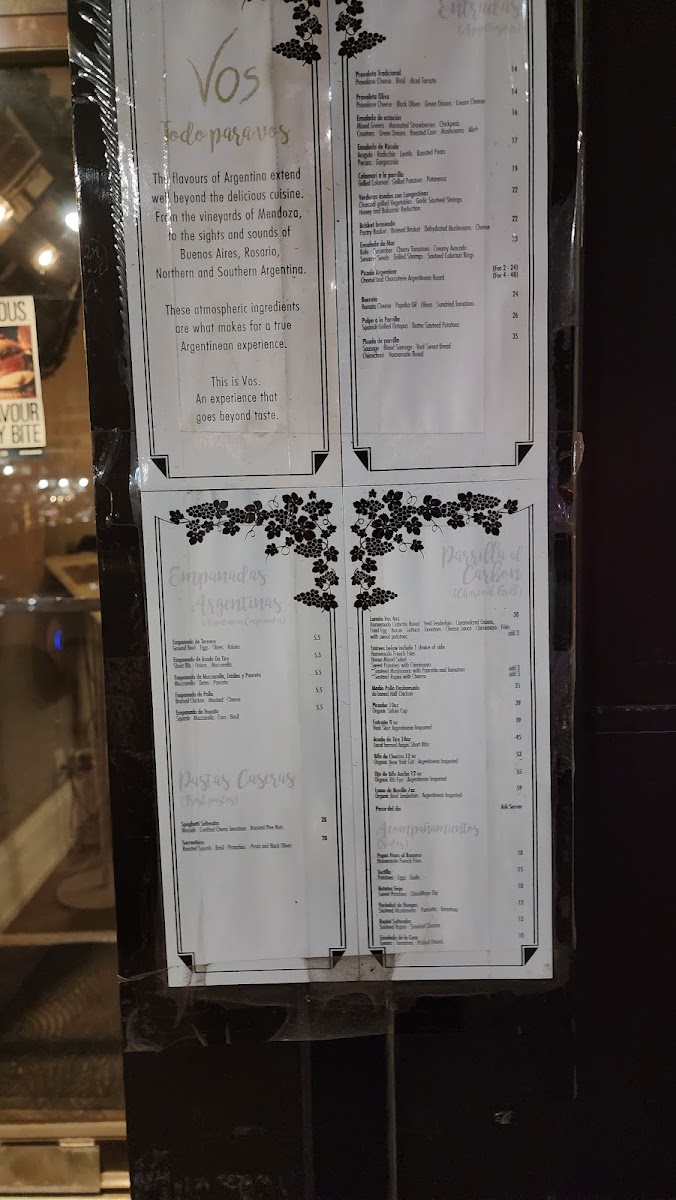 Vos
Todo para vos
The flavours of Argentina extend
well beyond the delicious cuisine.
From the vineyards of Mendoza,
to the sights and sounds of
Buenos Aires, Rosario,
Northern and Southern Argentina.
These atmospheric ingredients
are what makes for a true
Argentinean experience.
This is Vos.
An experience that
goes beyond taste.
Entradas
(Appetizers)
Provoleta Tradicional 14
Provolone Cheese Basil diced Tomato
Provoleta Oliva 14
Provolone Cheese Black Olives Green Onions Cream Cheese
Ensalada de estación 16
Mixed Greens Marinated Strawberries Chickpeas
Croutons Green Onions Roasted Corn Mushrooms
Ensalada de Rúcula 17
Arugula Radicchio Lentils Roasted Pears
Pecans Gorgonzola
Calamari a la parrilla 19
Grilled Calamari Grilled Potatoes Putanesca
Verduras asadas con Langostinos 22
Charcoal grilled Vegetables Garlic Sauteed Shrimps
Honey and Balsamic Reduction
Brisket braseado 22
Pastry Basket Braised Brisket Dehydrated Mushrooms Cheese
Ensalada de Mar
Kale Cucumber Cherry Tomatoes Creamy Avocado
Sesame Seeds Grilled Shrimps Sauteed Calamari Rings
Picada Argentina (For 2 - 24)
Cheese and Charcuterie Argentinean Board (For 4 - 48)
Burrata 24
Burrata Cheese Paprika Oil Olives Sundried Tomatoes
Pulpo a la Parrilla 26
Spanish Grilled Octopus Butter Sauteed Potatoes
Picada de parrilla 35
Sausage Blood Sausage Veal Sweet Bread
Chimichurri Homemade Bread
OUS
VOUR
Y BITE
Empanadas
Argentinas
(Argentinean Empanadas)
Empanada de Ternera 5.5
Ground Beef Eggs Olives Raisins
Empanada de Asado De Tira 5.5
Short Rib Onions Mozzarella
Empanada de Mozzarella, Datiles y Panceta 5.5
Mozzarella Dates Pancetta
Empanada de Pollo 5.5
Braised Chicken Mustard Cheese
Empanada de Humita 5.5
Squash Mozzarella Corn Basil
Pastas Caseras
(Fresh pastas)
Spaghetti Salteados 28
Broccolli Confited Cherry Tomatoes Roasted Pine Nuts
Sorrentinos 28
Roasted Squash Basil Pistachios Pesto and Black Olives
Parrilla al
Carbon
(Charcoal Grill)
Lomito Vos Azz 30
Homemade Ciabatta Bread Beef Tenderloin Caramelized Onions,
Fried Egg Bacon Lettuce Tomatoes Cheese Sauce Chimimayo Fries
with sweet potatoes add 3
Entrees below include 1 choice of side
Homemade French Fries
House Mixed Salad
Sweet Potatoes with Chimimayo
*Sauteed Mushrooms with Pancetta and Tomatoes add 3
*Sauteed Rapini with Chorizo add 3
Medio Pollo Deshuesado 35
de-boned Half Chicken
Picanha 10oz 39
Organic Sirloin Cap
Entraña 8 oz 39
Veal Skirt Argentinean Imported
Asado de Tira 18oz 45
Local farmed Angus Short Ribs
Bife de Chorizo 12 oz 53
Organic New York Cut Argentinean Imported
Ojo de Bife Ancho 12 oz 55
Organic Rib Eye Argentinean Imported
Lomo de Novillo 7oz 59
Organic Beef Tenderloin Argentinean Imported
Pesca del dia Ask Server
Acompañamientos
(Sides)
Papas Finas al Romero 10
Homemade French Fries
Tortilla 15
Potatoes Eggs Garlic
Batatas Gajo 10
Sweet Potatoes ChimiMayo Dip
Variedad de Hongos 13
Sauteed Mushrooms Pancetta Tomatoes
Rapini Salteados 13
Sauteed Rapini Smoked Chorizo
Ensalada de la Casa 10
Greens Tomatoes Pickled Onions